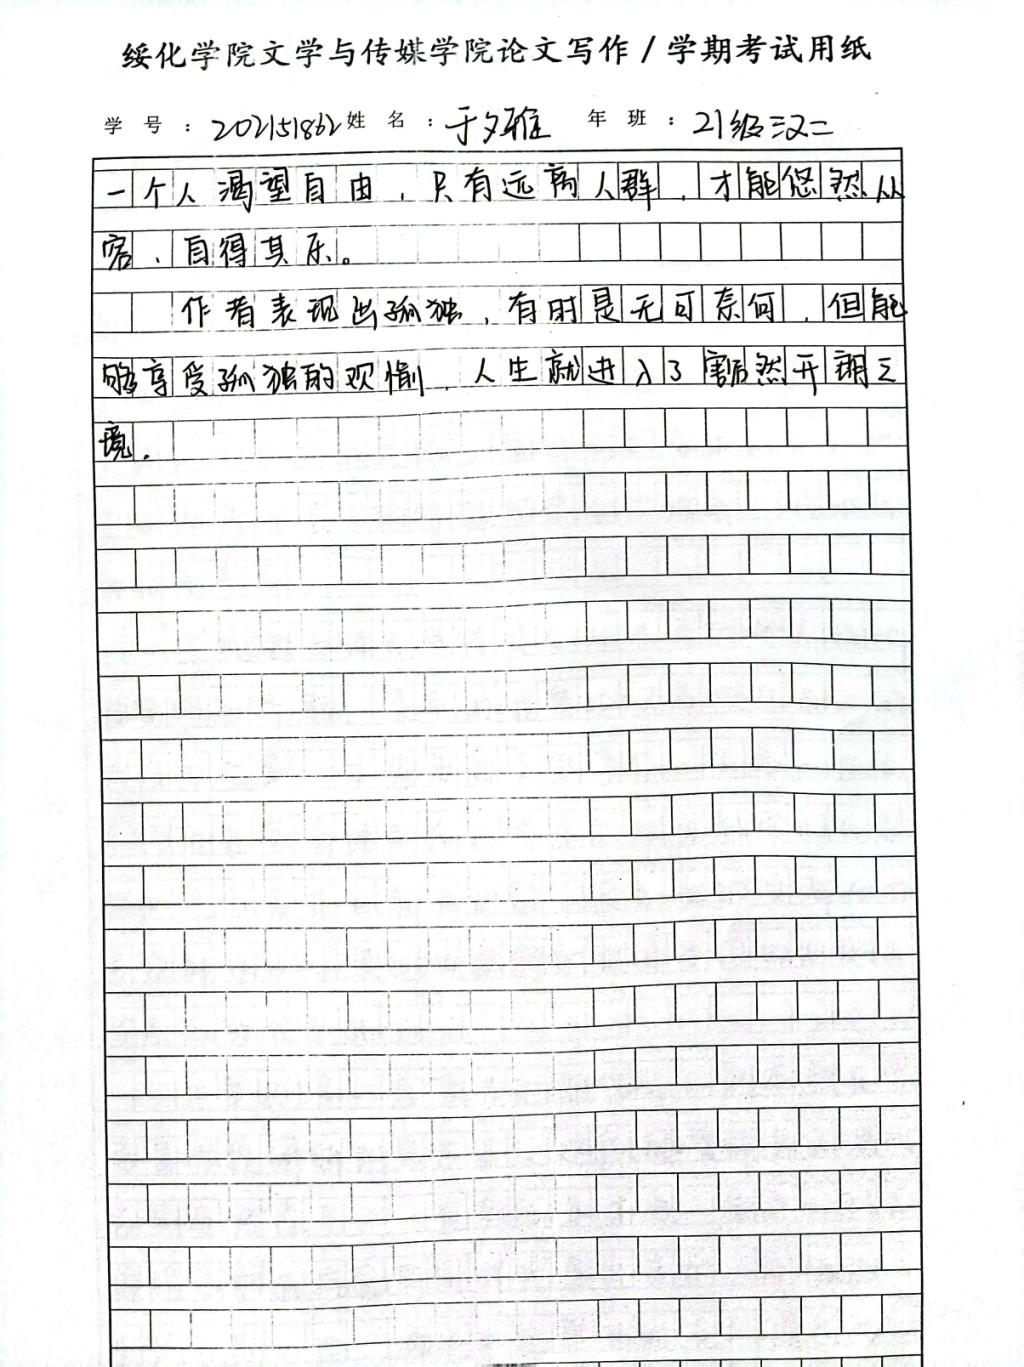 绥化学院文学与传媒学院论文写作/学期考试用纸
学号：202151862 姓名：于夕雅 年班：21级汉二
一个人渴望自由，只有远离人群，才能悠然从
容、自得其乐。
作者表现出孤独，有时是无可奈何，但能
够享受孤独的欢愉，人生就进入了豁然开朗之
境。